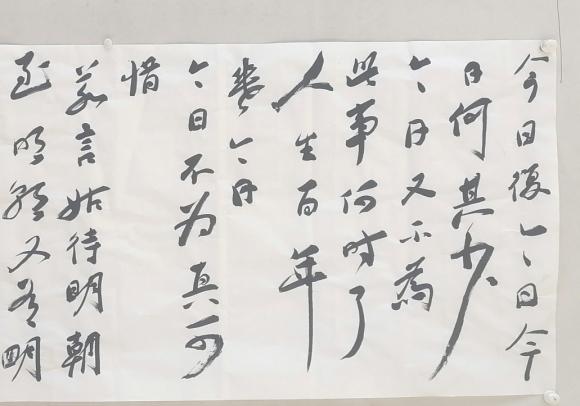 今日復今日今
日何其少
今日又不為
此事何时了
人生百年
幾今日
今日不为真可
惜
若言姑待明朝
至明朝又有明